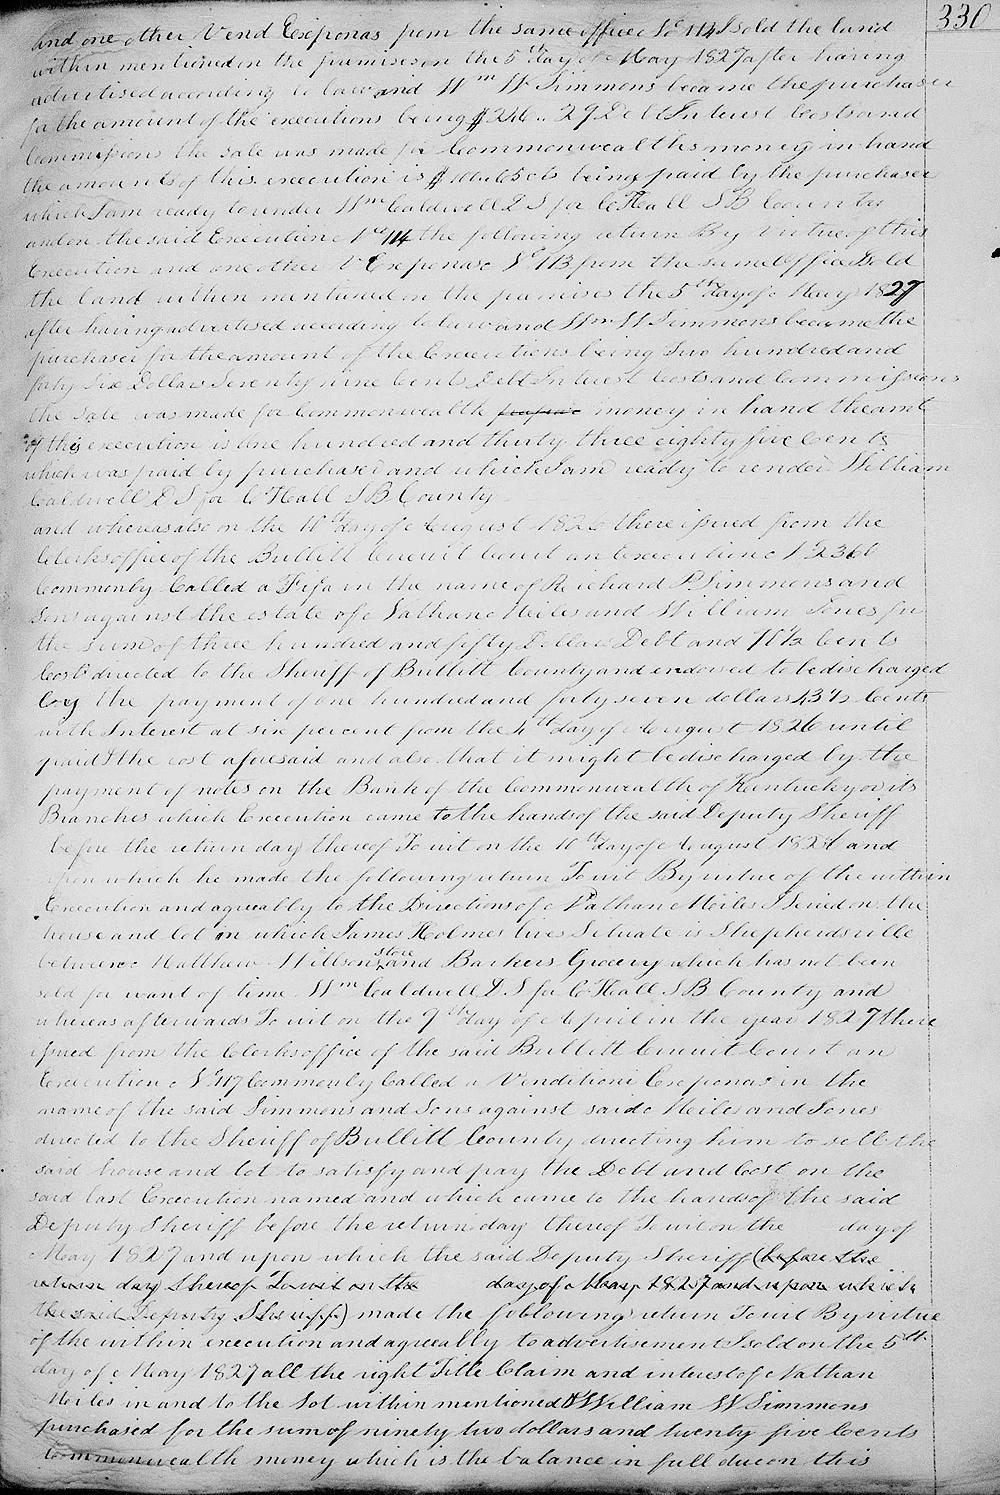 330
and one other Vend Exponas from the same office No 114 I sold the land
within mentioned on the premises on the 5th day of May 1827 after having
advertised according to law and Wm W Simmons became the purchaser
for the amount of the executions being $246..79 Debt Interest Costs and
Commissions the sale was made for Commonwealths money in hand
the amount of this execution is $ 65 cts being paid by the purchaser
which I am ready to render Wm Caldwell D S for C Hall S B County
and on the said Execution No 114 the following return By Virtue of this
Execution and one other V Exponas No 113 from the same office I sold
the land within mentioned on the premises the 5th day of May 1827
after having advertised according to law and Wm W Simmons became the
purchaser for the amount of the Executions being Two hundred and
forty Six Dollars Seventy nine Cents Debt Interest Costs and Commissions
the sale was made for Commonwealth money in hand the amt
of this execution is one hundred and thirty three eighty five Cents
which was paid by purchaser and which I am ready to render William
Caldwell D S for C Hall S B County
and whereas also on the 10th day of August 1826 there issued from the
Clerks office of the Bullitt Circuit Court an execution No 2366
Commonly Called a Fifa in the name of Richard P Simmons and
Sons against the estate of Nathan Moiles and William Jones for
the sum of three hundred and fifty Dollars Debt and Cents
Cost directed to the Sheriff of Bullitt County and endorsed to be discharged
by the payment of one hundred and forty seven dollars 43½ Cents
with Interest at six percent from the 4th day of August 1826 until
paid & the cost aforesaid and also that it might be discharged by the
payment of notes on the Bank of the Commonwealth of Kentucky or its
Branches which Execution came to the hands of the said Deputy Sheriff
before the return day thereof Towit on the 10th day of August 1826 and
upon which he made the following return Towit By virtue of the within
Execution and agreeably to the Directions of Nathan Moiles I levied on the
house and lot in which James Holmes lives Situate is Shepherdsville
between Matthew Willsons store and Barkers Grocery which has not been
sold for want of time Wm Caldwell D S for C Hall S B County and
whereas afterwards Towit on the 9th day of April in the year 1827 there
issued from the Clerks office of the said Bullitt Circuit Court an
Execution No 117 Commonly Called a Venditioni Exponas in the
name of the said Simmons and Sons against said Moiles and Jones
directed to the Sheriff of Bullitt County directing him to sell the
said house and lot to satisfy and pay the Debt and Cost on the
said last Execution named and which came to the hands of the said
Deputy Sheriff before the return day thereof Towit on the day of
May 1827 and upon which the said Deputy Sheriff (before the
return day thereof Towit on the day of May 1827 and upon which
the said Deputy Sheriff) made the following return Towit By virtue
of the within execution and agreeably to advertisement I sold on the 5th
day of May 1827 all the right Title Claim and interest of Nathan
Moiles in and to the Lot within mentioned & William W Simmons
purchased for the sum of ninety two dollars and twenty five Cents
Commonwealth money which is the balance in full due on this